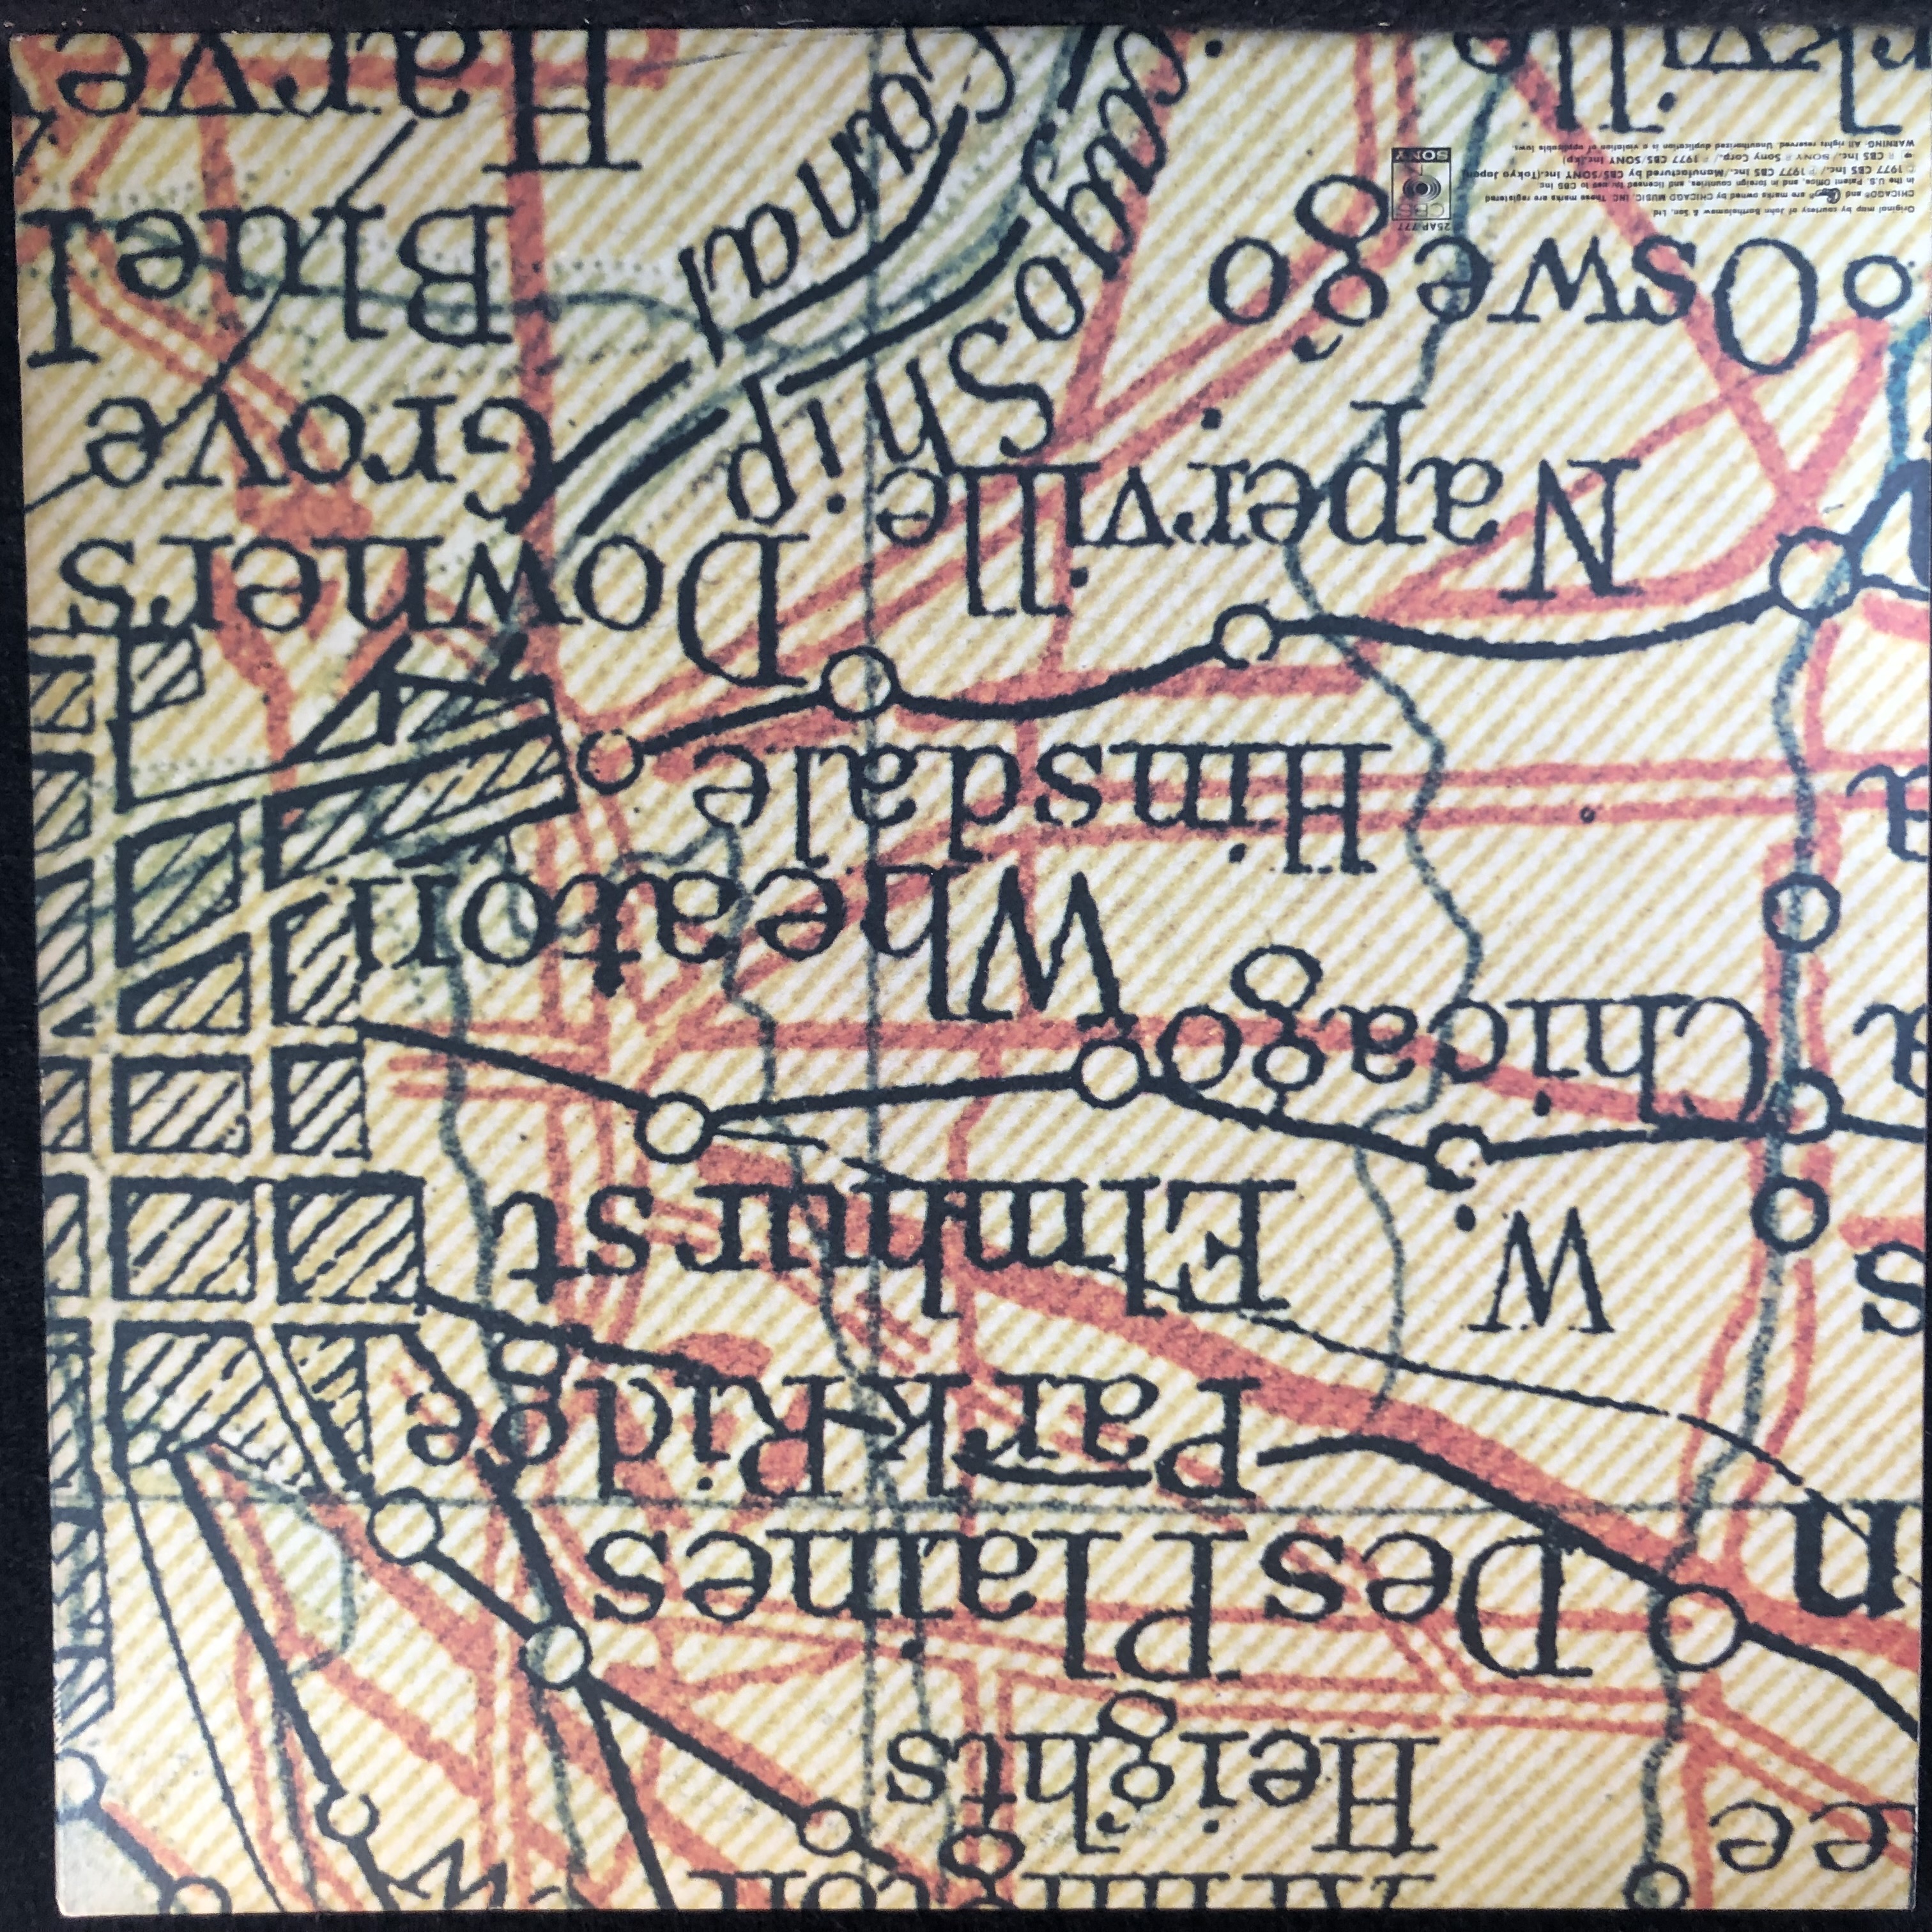 Arlington
Heights
Des Plaines
Park Ridge
W.
Elmhurst
Chicago
Wheaton
Hinsdale
Naperville
Downers
Grove
Oswego
Ship
Canal
Original map by courtesy of John Bartholomew & Son, Ltd
CHICAGO® and Chicago® are marks owned by CHICAGO MUSIC, INC. These marks are registered
in the U.S. Patent Office, and in foreign countries, and licensed for use to CBS Inc.
© 1977 CBS Inc./℗ 1977 CBS Inc./Manufactured by CBS/SONY Inc.(Tokyo Japan)
CBS Inc./ SONY ® Sony Corp./ ℗ 1977 CBS/SONY Inc.
WARNING: All rights reserved. Unauthorized duplication is a violation of applicable laws.
25AP 777
CBS
SONY